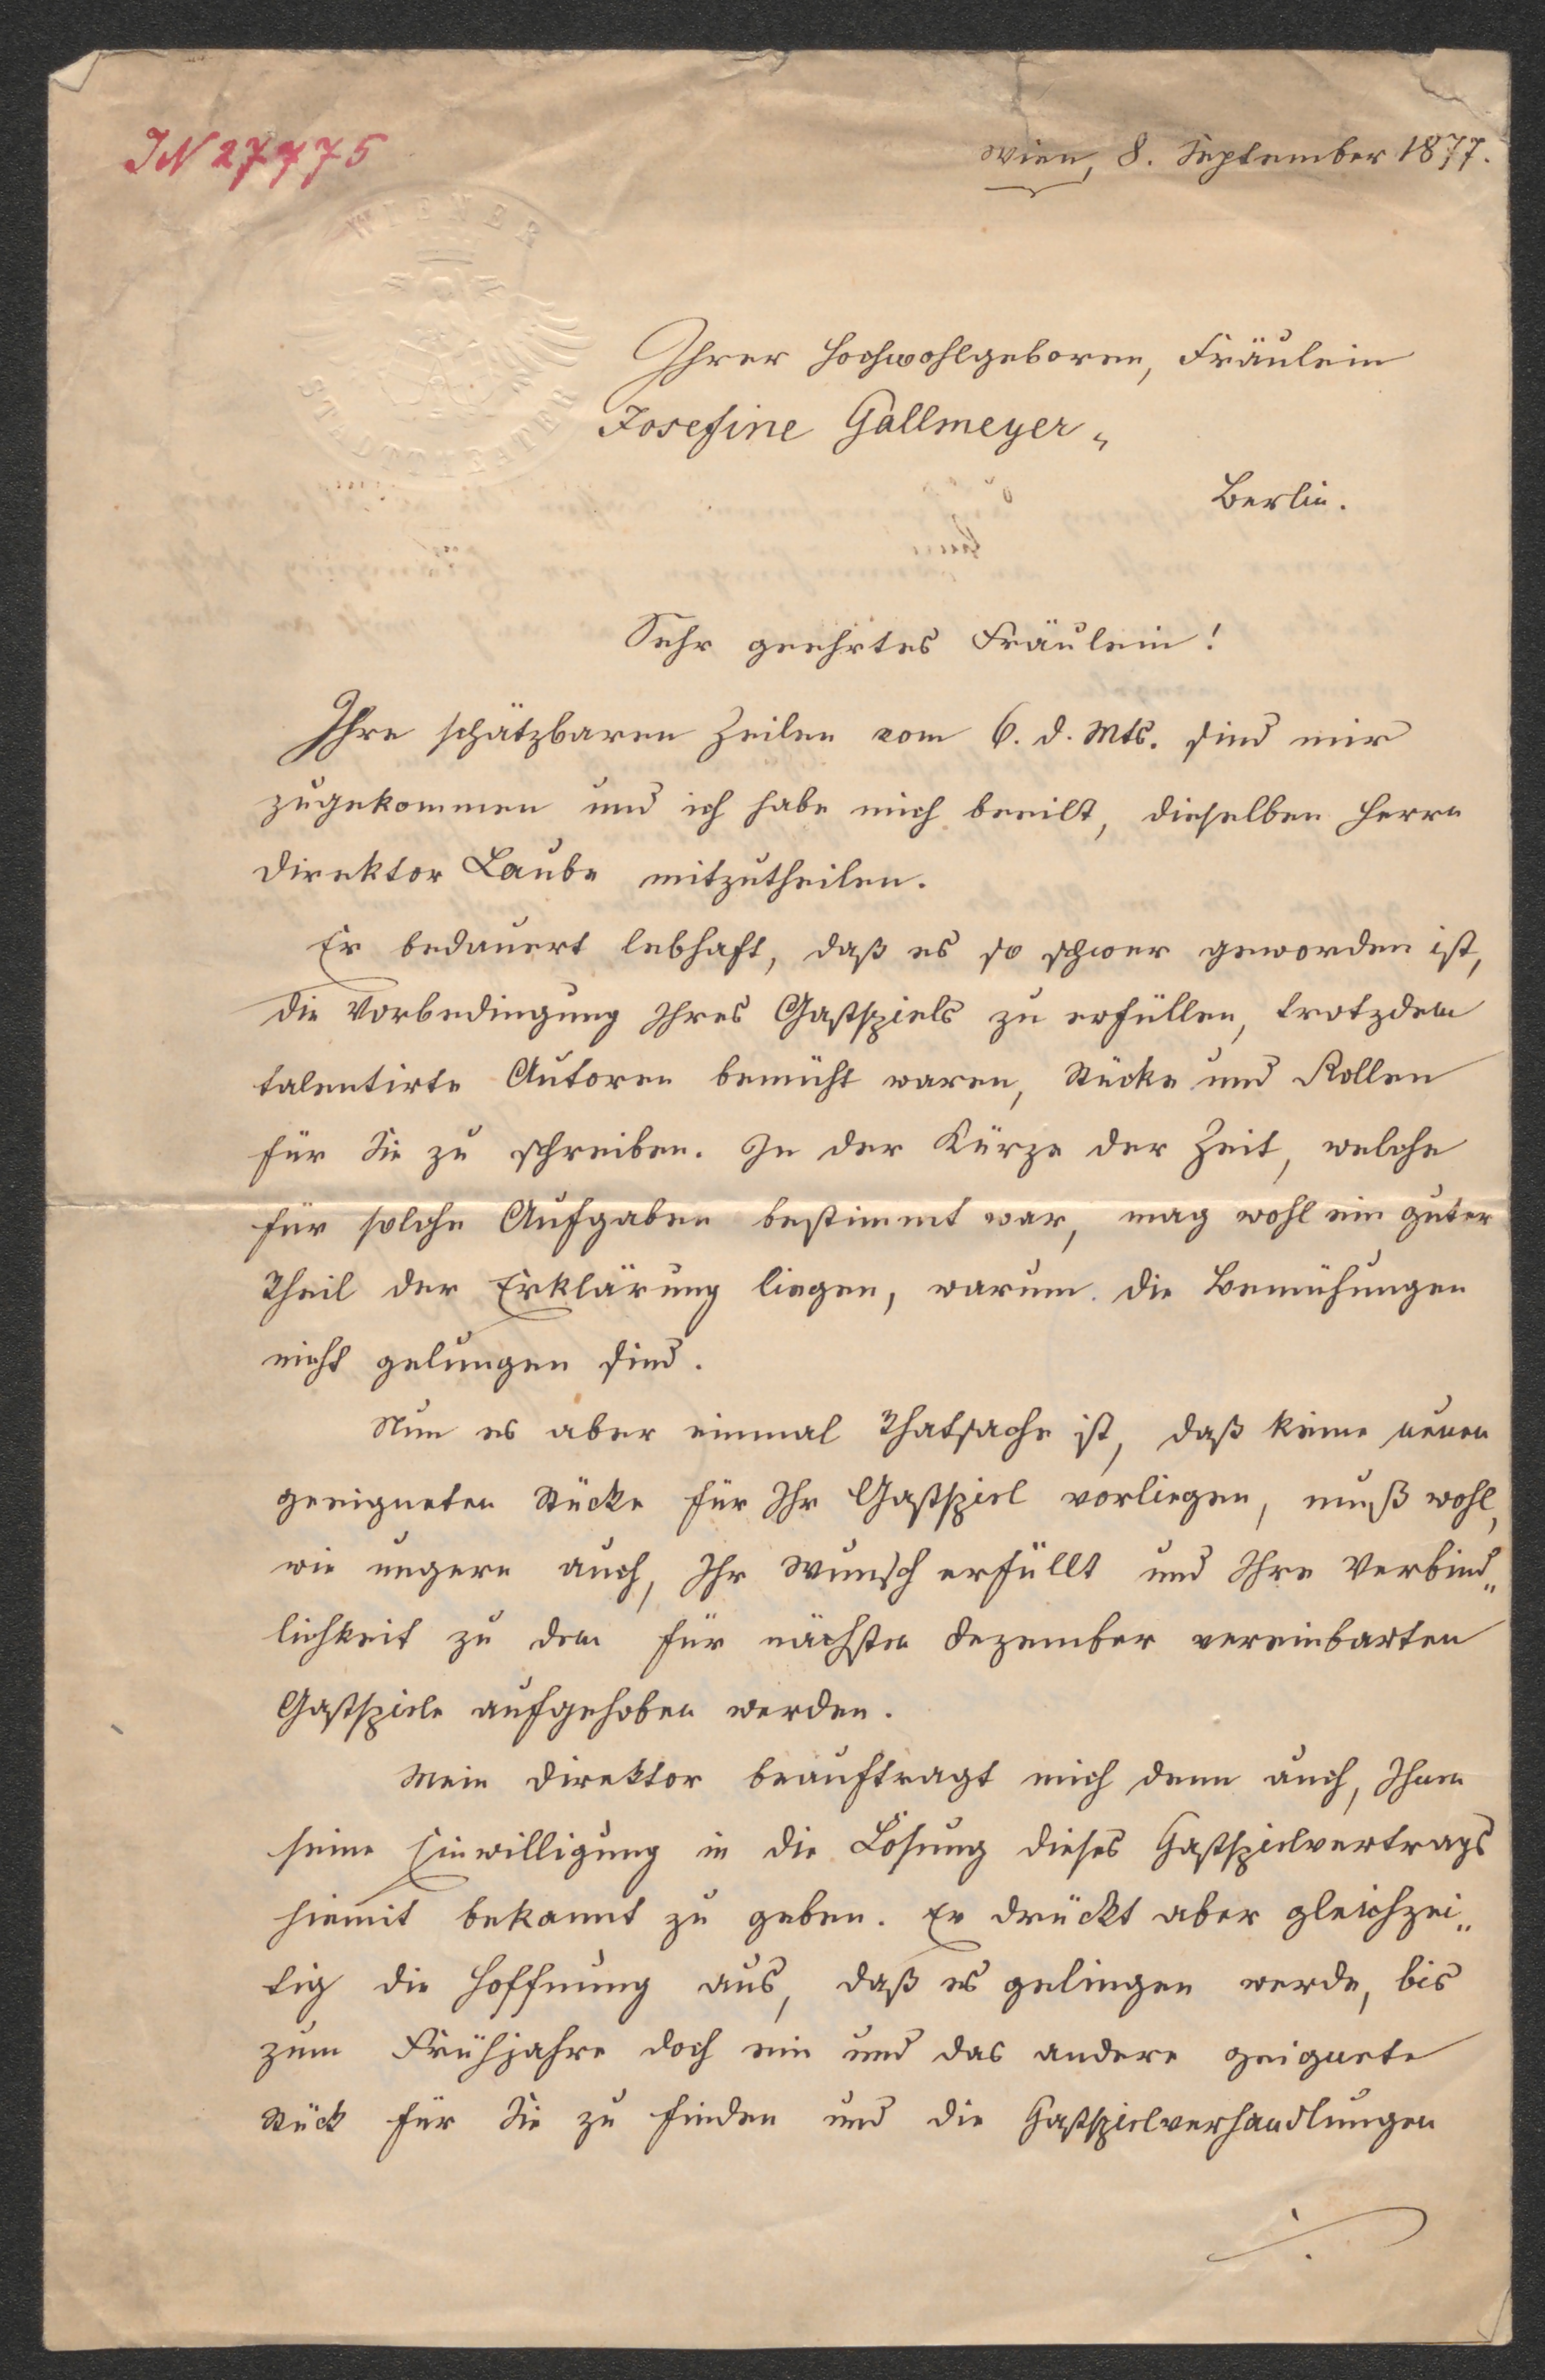 IN 27475
Wien, 8. September 1877.
WIENER
STADTTHEATER
Ihrer Hochwohlgeboren, Fräulein
Josefine Gallmeyer,
Berlin.
Sehr geehrtes Fräulein!
Ihre schätzbaren Zeilen vom 6. d. Mts. sind mir
zugekommen und ich habe mich beeilt, dieselben Herrn
Direktor Laube mitzutheilen.
Er bedauert lebhaft, daß es so schwer geworden ist,
die Vorbedingung Ihres Gastspiels zu erfüllen, trotzdem
talentirte Autoren bemüht waren, Stücke und Rollen
für Sie zu schreiben. In der Kürze der Zeit, welche
für solche Aufgaben bestimmt war, mag wohl ein guter
Theil der Erklärung liegen, warum die Bemühungen
nicht gelungen sind.
Nun es aber einmal Thatsache ist, daß keine neuen
geeigneten Stücke für Ihr Gastspiel vorliegen, muß wohl,
wie ungern auch, Ihr Wunsch erfüllt und Ihre Verbind„
lichkeit zu dem für nächsten Dezember vereinbarten
Gastspiele aufgehoben werden.
Mein Direktor beauftragt mich denn auch, Ihnen
seine Einwilligung in die Lösung dieses Gastspielvertrags
hiemit bekannt zu geben. Er drückt aber gleichzei„
tig die Hoffnung aus, daß es gelingen werde, bis
zum Frühjahre doch ein und das andere geignete
Stück für Sie zu finden und die Gastspielverhandlungen
./.